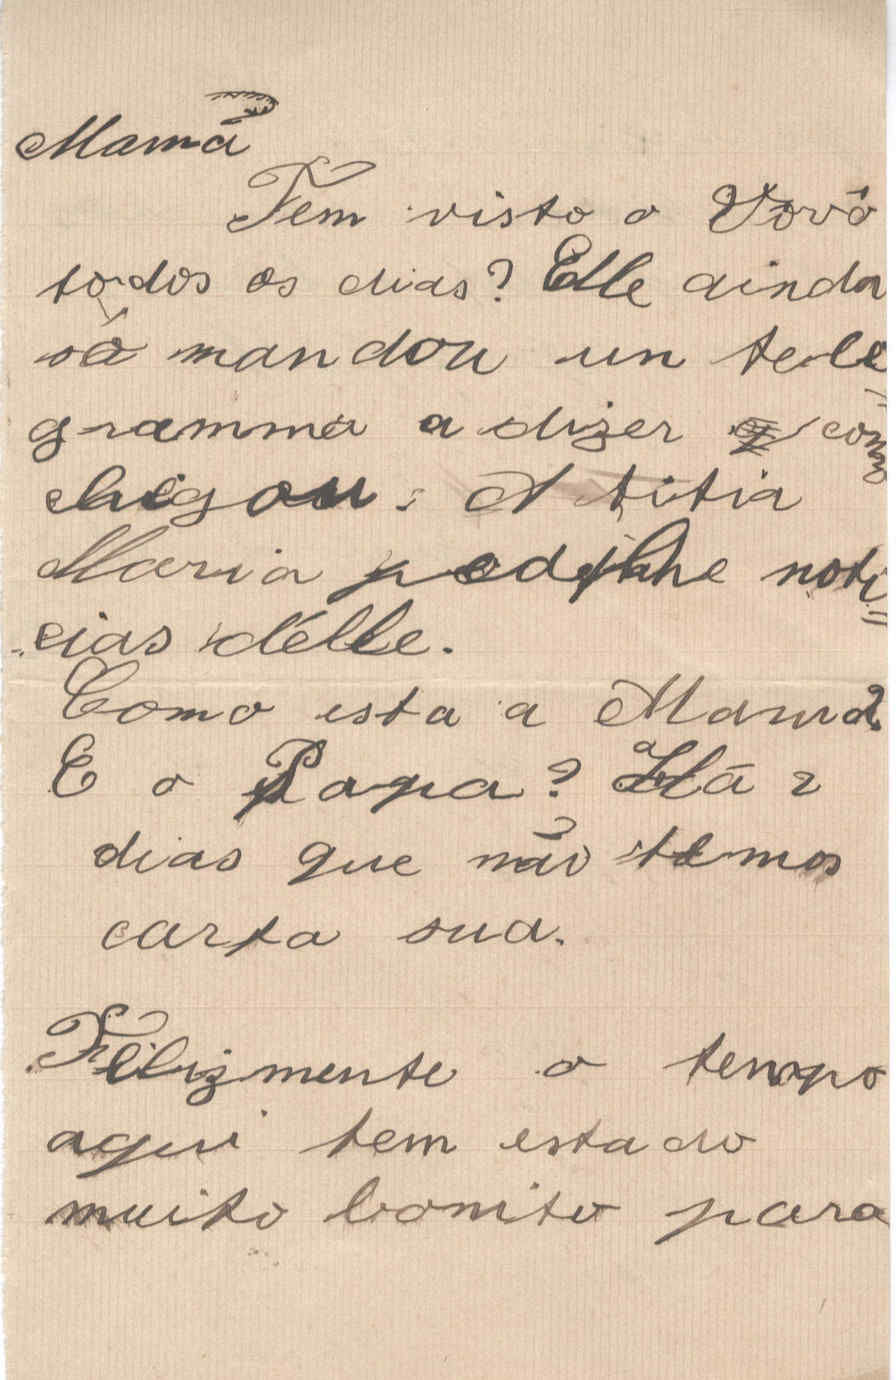 Mamã
Tem visto o Vovô
todos os dias? Elle ainda
só mandou un tele
gramma a dizer como
chegou. A titia
Maria pede-lhe noti=
cias d'elle.
Como esta a Mamã?
E o Papa? Há 2
dias que não temos
carta sua.
Felizmente o tempo
aqui tem estado
muito bonito para